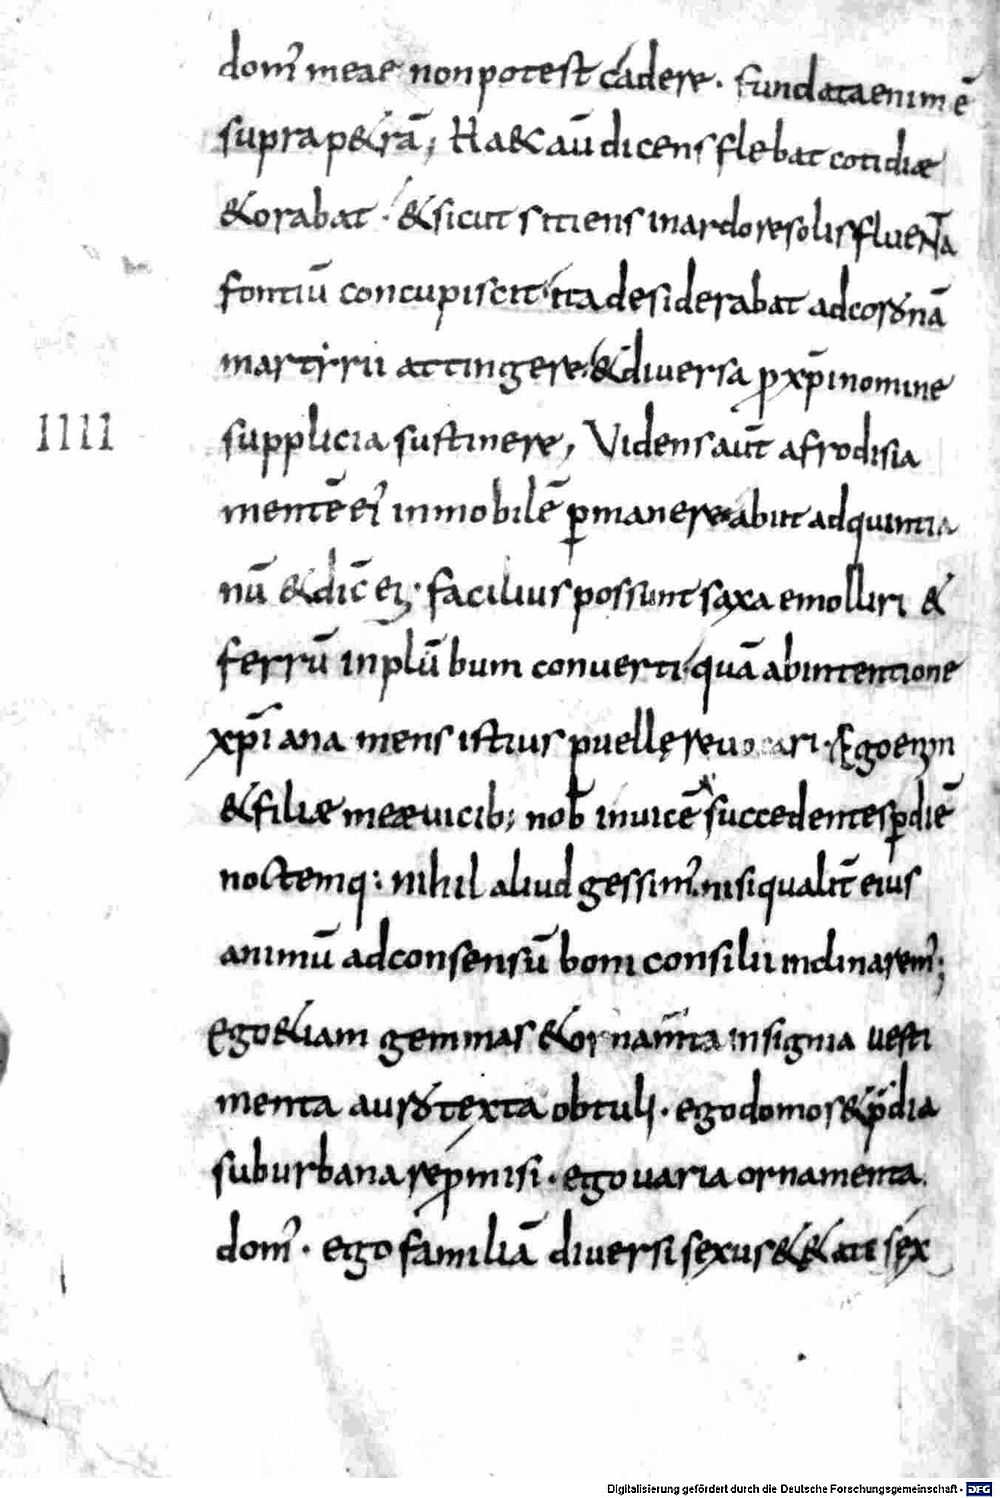 dom᾽ meae non potest cadere · fundata enim ē
supra p&rā ; Ha&c aū dicens flebat cotidiæ
& orabat · & sicut sitiens in ardore solis fluenta
fontiū concupiscit ita desiderabat ad coronā
martyrii attingere & diversa ꝓ xp̄i nomine
IIII
supplicia sustinere , Videns aut̄ afrodisia
mentē ei᾽ inmobilē ꝑmanere abiit ad quintia
nū & dic̄ ei · facilius possunt saxa emolliri &
ferrū in plūbum converti quā ab intentione
xp̄iana mens istius puellę revocari · Ego enim
& filiæ meæ vicib; nob̄ invicē succedentes ꝑ diē
noctemq: nihil aliud gessim᾽ nisi qualit̄ eius
animū ad consensū boni consilii inclinarem᾽;
Ego &iam gemmas & ornam̄ta insignia vesti
menta auro texta obtuli · ego domos & p̄dia
suburbana repromisi · ego varia ornamenta
dom᾽ · ego familiā diversi sexus & &atis ex
Digitalisierung gefördert durch die Deutsche Forschungsgemeinschaft - DFG